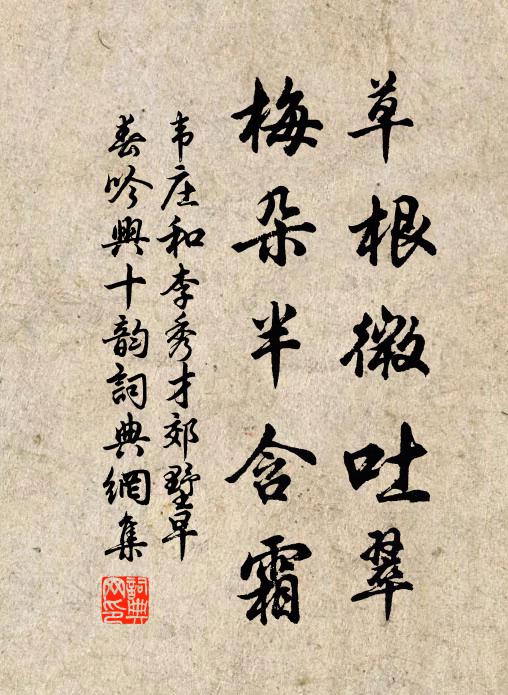 草根微吐翠
梅朵半含霜
韦庄和李秀才郊墅早
春吟興十韵詞典網集
詞典网印